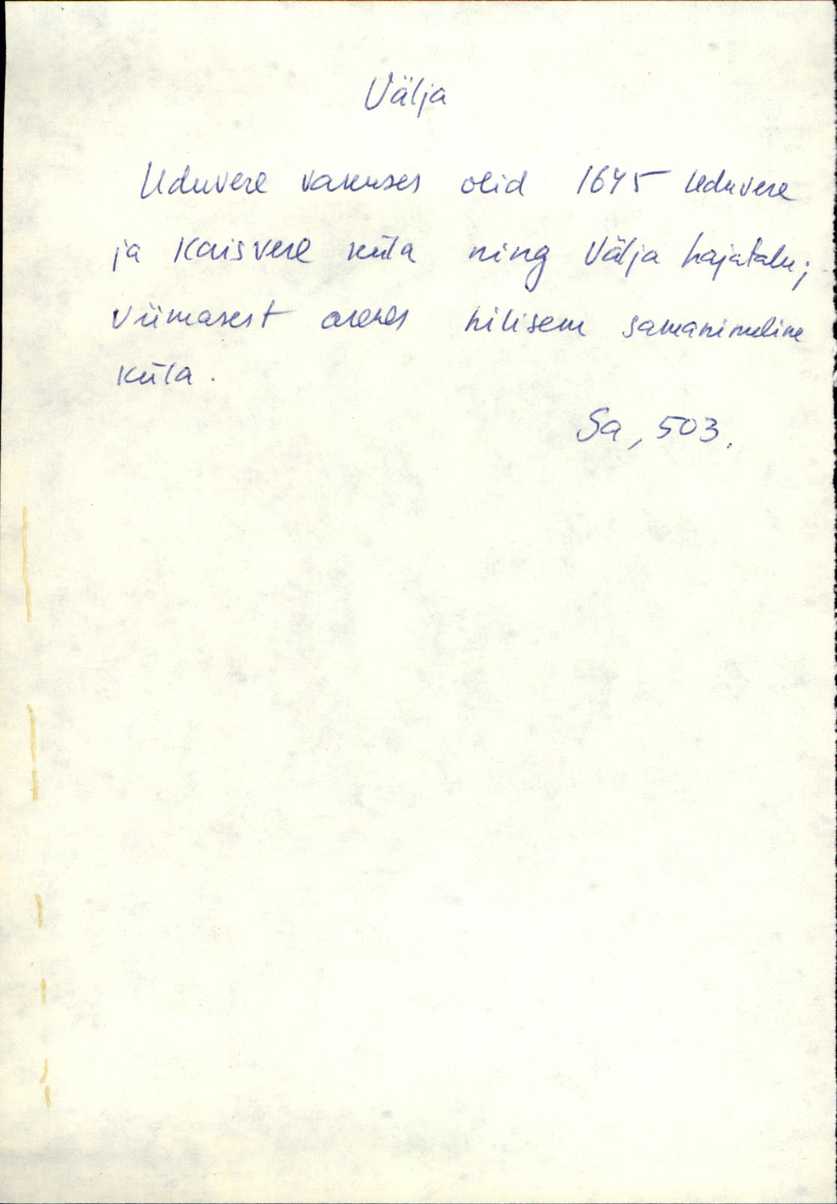 Välja
Uduvere vakuses olid 1645 Uduvere
ja Kaisvere küla ning Välja hajatalu;
viimasest arenes hilisem samanimeline
küla.
Sa, 503.